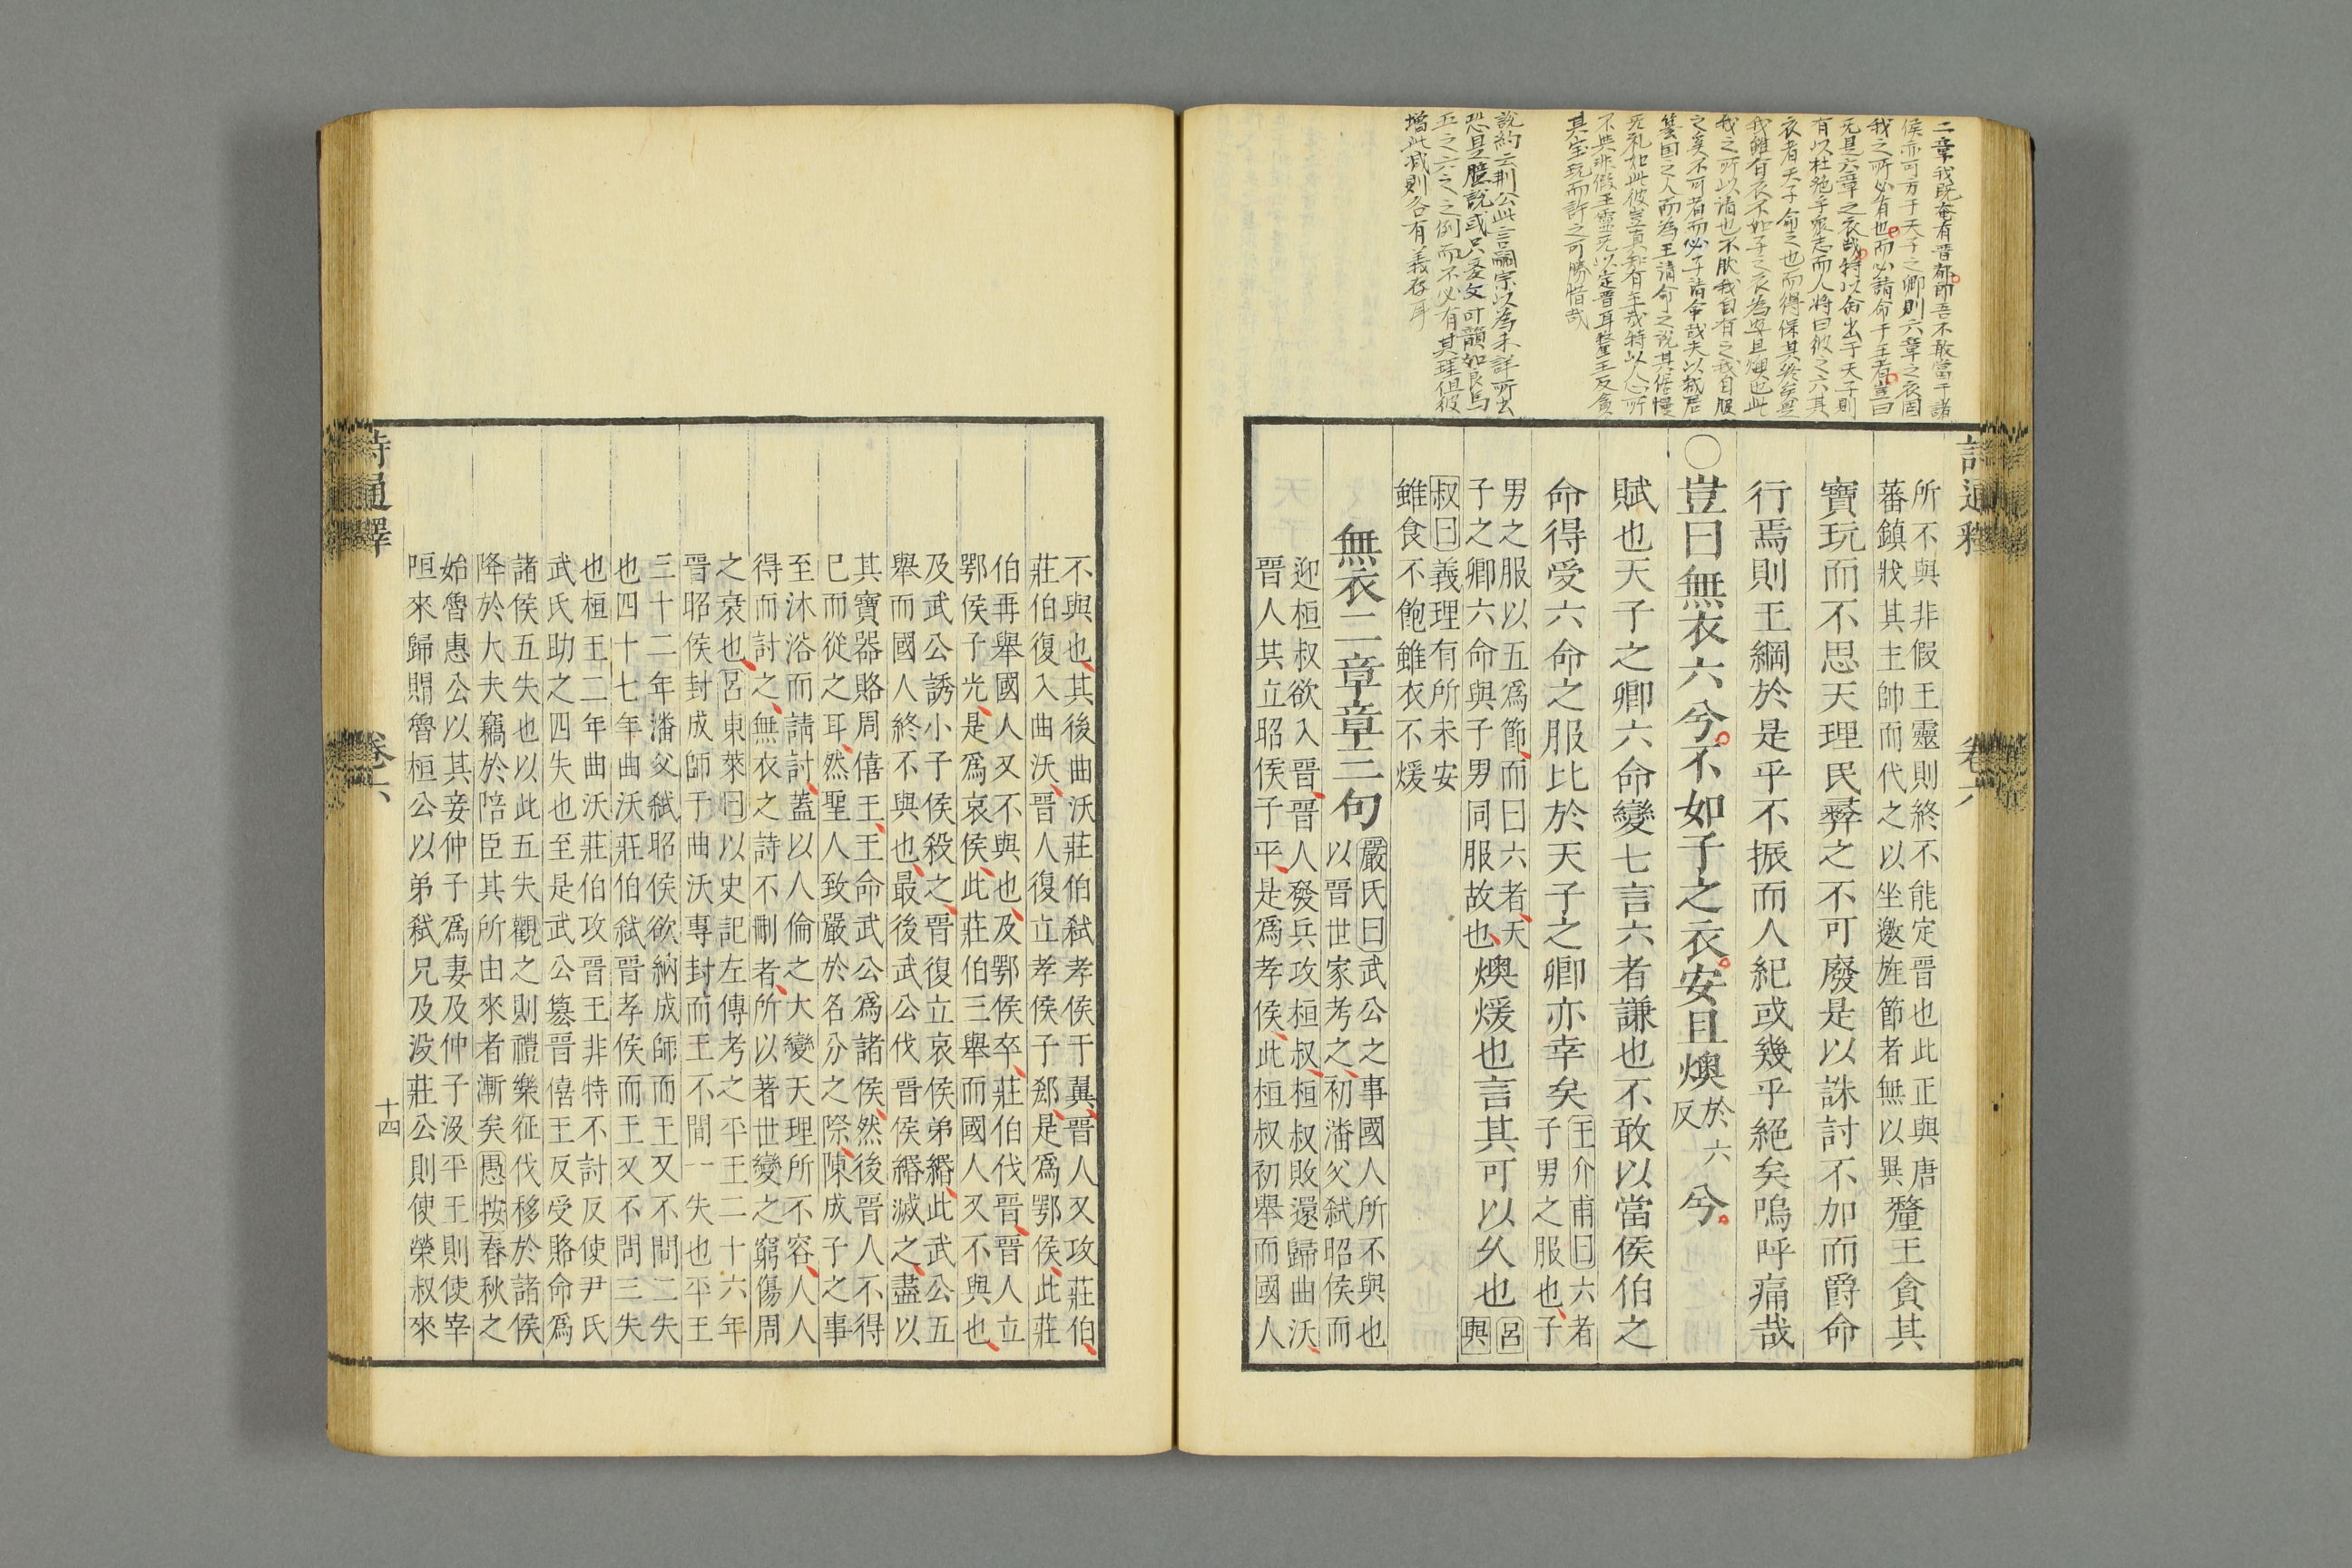 二章我既奄有晋都即吾不敢當于諸
侯亦可方于天子之卿則六章之衣固
我之所必有也而必請命于王者豈曰
无是六章之衣哉特以命出于天子則
有以杜絶乎衆志而人將曰彼之六其
衣者天子命之也而得保其終矣是
我雖有衣不如子之衣為安且燠也此
我之所以請也不肰我自有之我自服
之奚不可者而必子請命哉夫以弑君
簒国之人而為王請命之說其倨慢
无礼如此彼豈真知有王哉特以人心所
不與非假王靈无以定晋耳釐王反貪
其宝玩而許之可勝惜哉
說約云荆公此言嗣宗以為未詳所出
恐是臆說或只变文叶韻如良馬
五之六之之例而不必有其理但彼
增此减則各有義存耳
詩通釋 卷六
所不與非假王靈則終不能定晉也此正與唐
藩鎮戕其主帥而代之以坐邀旌節者無以異
釐王貪其
寶玩而不思天理民彛之不可廢是以誅討不加而爵命
行焉則王綱於是乎不振而人紀或幾乎絕矣嗚呼痛哉
○豈曰無衣六兮不如子之衣安且燠於六反兮
賦也天子之卿六命變七言六者謙也不敢以當侯伯之
命得受六命之服比於天子之卿亦幸矣
王介甫曰六者
子男之服也子
男之服以五爲節而曰六者天
子之卿六命與子男同服故也
燠煖也言其可以久也
呂
與
叔曰義理有所未安
雖食不飽雖衣不煖
無衣二章章三句
嚴氏曰武公之事國人所不與也
以晉世家考之初潘父弑昭侯而
迎桓叔欲入晉晉人發兵攻桓叔桓叔敗還歸曲沃
晉人共立昭侯子平是爲孝侯此桓叔初舉而國人
不與也其後曲沃莊伯弑孝侯于翼晉人又攻莊伯
莊伯復入曲沃晉人復立孝侯子郄是爲鄂侯此莊
伯再舉國人又不與也及鄂侯卒莊伯伐晉晉人立
鄂侯子光是爲哀侯此莊伯三舉而國人又不與也
及武公誘小子侯殺之晉復立哀侯弟緡此武公五
舉而國人終不與也最後武公伐晉侯緡滅之盡以
其寶器賂周僖王王命武公爲諸侯然後晉人不得
已而從之耳然聖人致嚴於名分之際陳成子之事
至沐浴而請討蓋以人倫之大變天理所不容人人
得而討之無衣之詩不刪者所以著世變之窮傷周
之衰也呂東萊曰以史記左傳考之平王二十六年
晉昭侯封成師于曲沃專封而王不問一失也平王
三十二年潘父弑昭侯欲納成師而王又不問二失
也四十七年曲沃莊伯弑晉孝侯而王又不問三失
也桓王二年曲沃莊伯攻晉王非特不討反使尹氏
武氏助之四失也至是武公簒晉僖王反受賂命爲
諸侯五失也以此五失觀之則禮樂征伐移於諸侯
降於大夫竊於陪臣其所由來者漸矣愚按春秋之
始魯惠公以其妾仲子爲妻及仲子沒平王則使宰
咺來歸賵魯桓公以弟弑兄及沒莊公則使榮叔來
詩通釋 卷六 十四